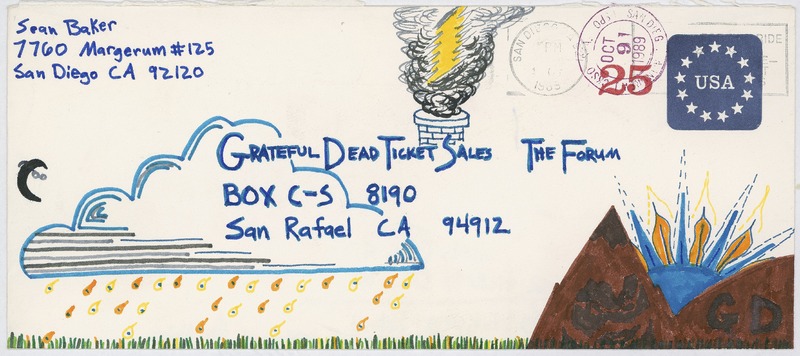 Sean Baker
7760 Margerum #125
San Diego CA 92120
SAN DIEGO
1989
SAN DIEG
OCT
9
1989
25
USA
RIDE
GRATEFUL DEAD TICKET SALES THE FORUM
BOX C-S 8190
San Rafael CA 94912
GD